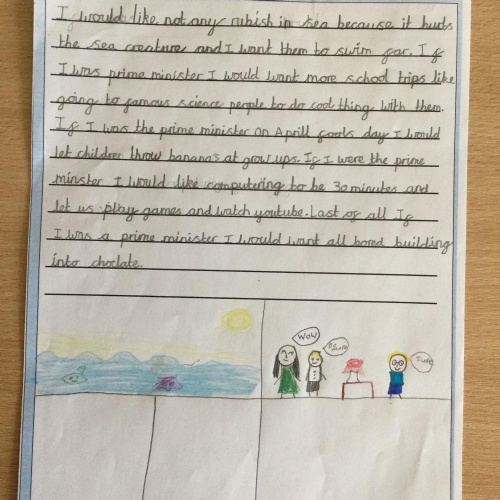 I would like not any rubish in sea because it hurts
the sea creature and I want them to swim far. If
I was prime minister I would want more school trips like
going to famous science people to do cool thing with them.
If I was the prime minister on Aprill fools day I would
let children throw bananas at grow ups. If I were the prime
minster I would like computering to be 30 minutes and
let us play games and watch youtube. Last of all If
I was a prime minister I would want all bored building
into choclate.
Wow